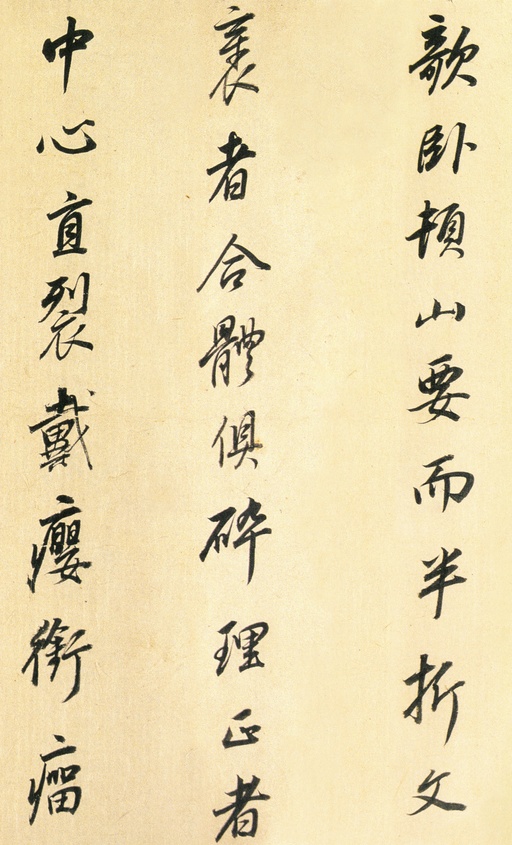 欹卧頓山要而半折文
衺者合體俱碎理正者
中心直裂戴癭銜瘤